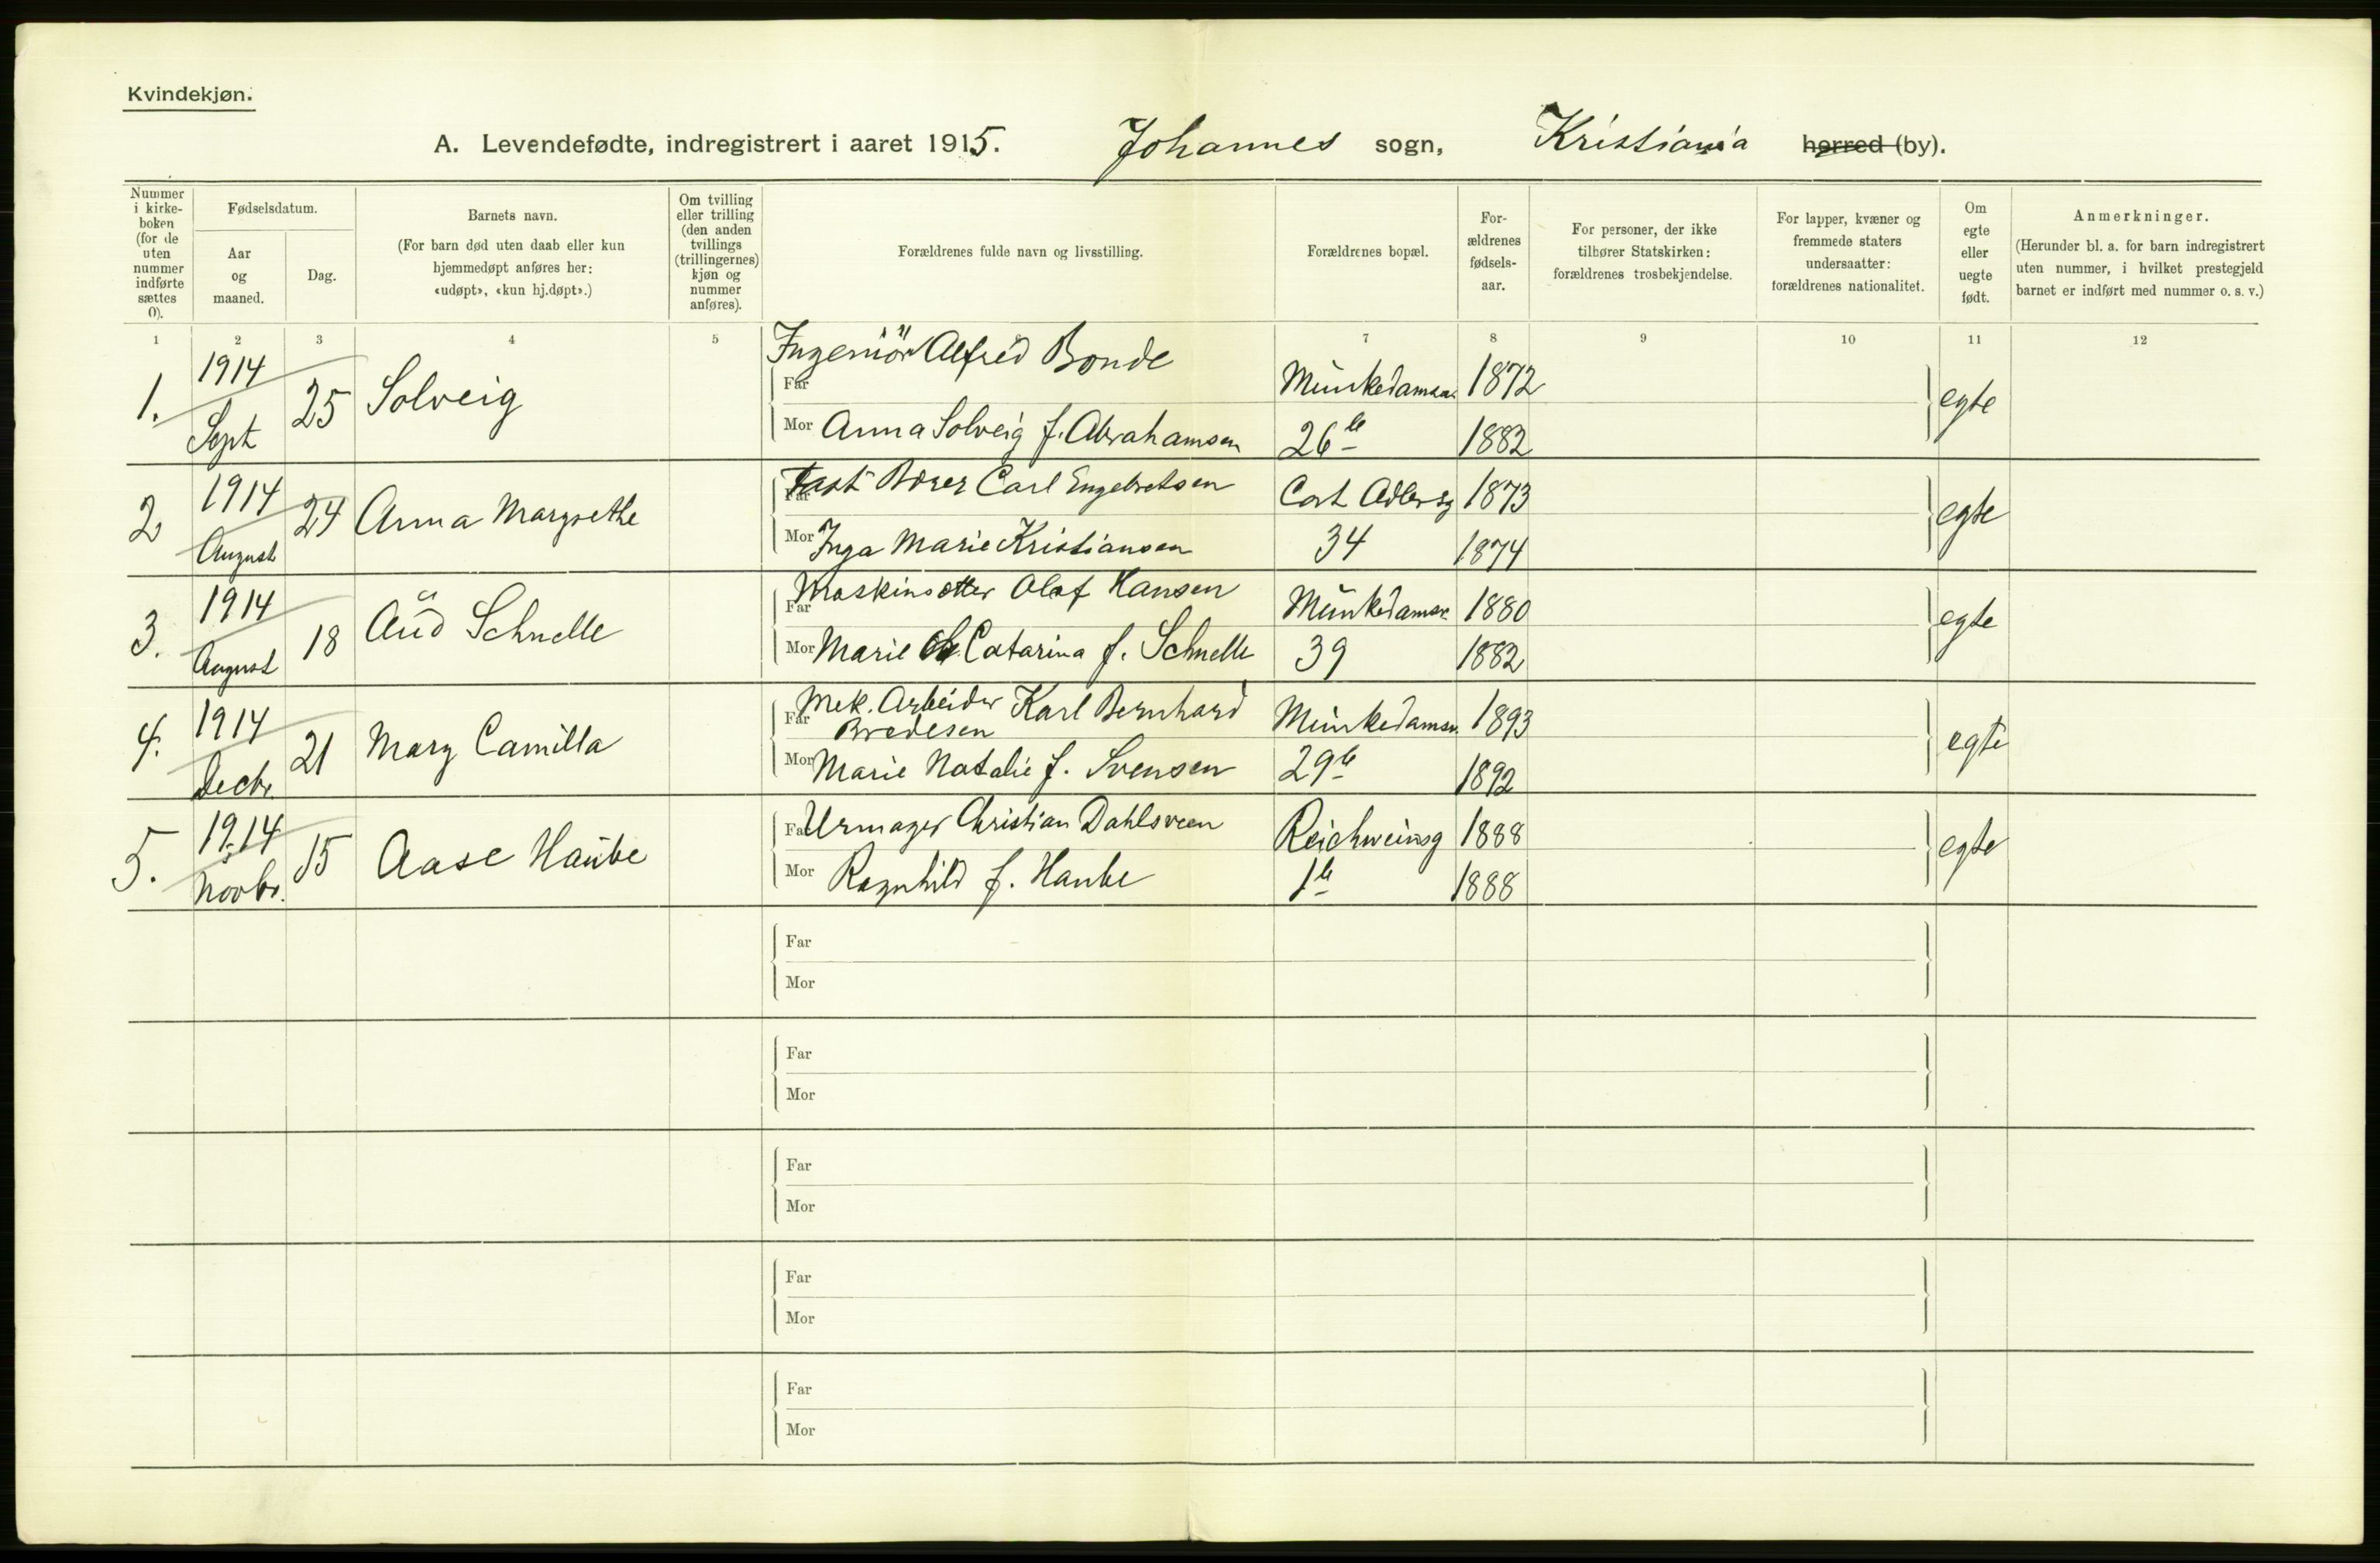 Kvindekjøn.
A. Levendefødte, indregistrert i aaret 1915. Johannes sogn, Kristiania herred (by).
Nummer i kirke-boken (for de uten nummer indførte sættes 0).
Fødselsdatum.
Aar og maaned.
Dag.
Barnets navn.
(For barn død uten daab eller kun hjemmedøpt anføres her: «udøpt», «kun hj.døpt».)
Om tvilling eller trilling (den anden tvillings (trillingernes) kjøn og nummer anføres).
Forældrenes fulde navn og livsstilling.
Forældrenes bopæl.
For-ældrenes fødsels-aar.
For personer, der ikke tilhører Statskirken: forældrenes trosbekjendelse.
For lapper, kvæner og fremmede staters undersaatter: forældrenes nationalitet.
Om egte eller uegte født.
Anmerkninger.
(Herunder bl. a. for barn indregistrert uten nummer, i hvilket prestegjeld barnet er indført med nummer o. s. v.)
1 2 3 4 5 7 8 9 10 11 12
1. 1914 Sept 25 Solveig
Far Ingeniör Alfred Bonde Munkedamsv. 1872 egte
Mor Anna Solveig f. Abrahamsen 26b 1882
2 1914 August 24 Anna Margrethe
Far Fast Carl Engebretsen Cort Adlersg 1873 egte
Mor Inga Marie Kristiansen 34 1874
3. 1914 August 18 Aud Schnelle
Far Olaf Hansen Munkedamsv 1880 egte
Mor Marie Catarina f. Schnelle 39 1882
4. 1914 Decbr. 21 Mary Camilla
Far Mek. Arbeider Karl Bernhard Bredesen Munkedamsv. 1893 egte
Mor Marie Natalie f. Svensen 29b 1892
5. 1914 Novbr. 15 Aase Haube
Far Urmager Christian Dahlsveen Reichweinsg 1888 egte
Mor Ragnhild f. Haube 1b 1888
Far
Mor
Far
Mor
Far
Mor
Far
Mor
Far
Mor